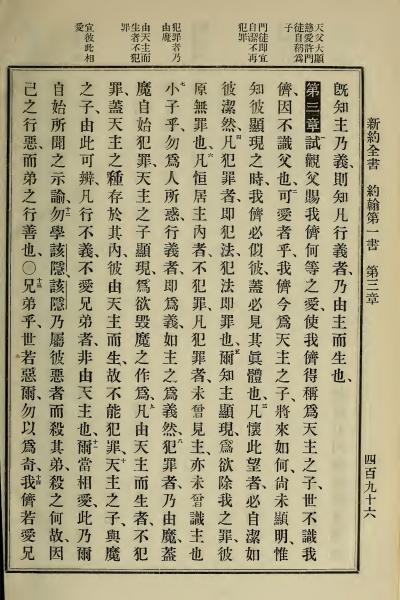 新約全書　約翰第一書　第三章
四百九十六
天父大顯
慈愛許門
徒自稱爲
子
門徒卽宜
自潔不再
犯罪
犯罪者乃
由魔
由天主而
生者不犯
罪
宜彼此相
愛
旣知主乃義、則知凡行義者、乃由主而生也、
第三章一試觀父賜我儕何等之愛、使我儕得稱爲天主之子、世不識我
儕、因不識父也、二可愛者乎、我儕今爲天主之子、將來如何、尙未顯明、惟
知彼顯現之時、我儕必似彼、蓋必見其眞體也、三凡懷此望者、必自潔、如
彼潔然、四凡犯罪者、卽犯法、犯法卽罪也、五爾知主顯現、爲欲除我之罪、彼
原無罪也、六凡恒居主內者、不犯罪、凡犯罪者、未曾見主、亦未曾識主也、
七小子乎、勿爲人所惑、行義者、卽爲義、如主之爲義然、八犯罪者、乃由魔、蓋
魔自始犯罪、天主之子顯現、爲欲毀魔之作爲、九凡由天主而生者、不犯
罪、蓋天主之種存於其內、彼由天主而生、故不能犯罪、十天主之子、與魔
之子、由此可辨、凡行不義、不愛兄弟者、非由天主也、十一爾當相愛、此乃爾
自始所聞之示諭、十二勿學該隱、該隱乃屬彼惡者、而殺其弟、殺之何故、因
己之行惡、而弟之行善也、〇十三兄弟乎、世若惡爾、勿以爲奇、十四我儕若愛兄